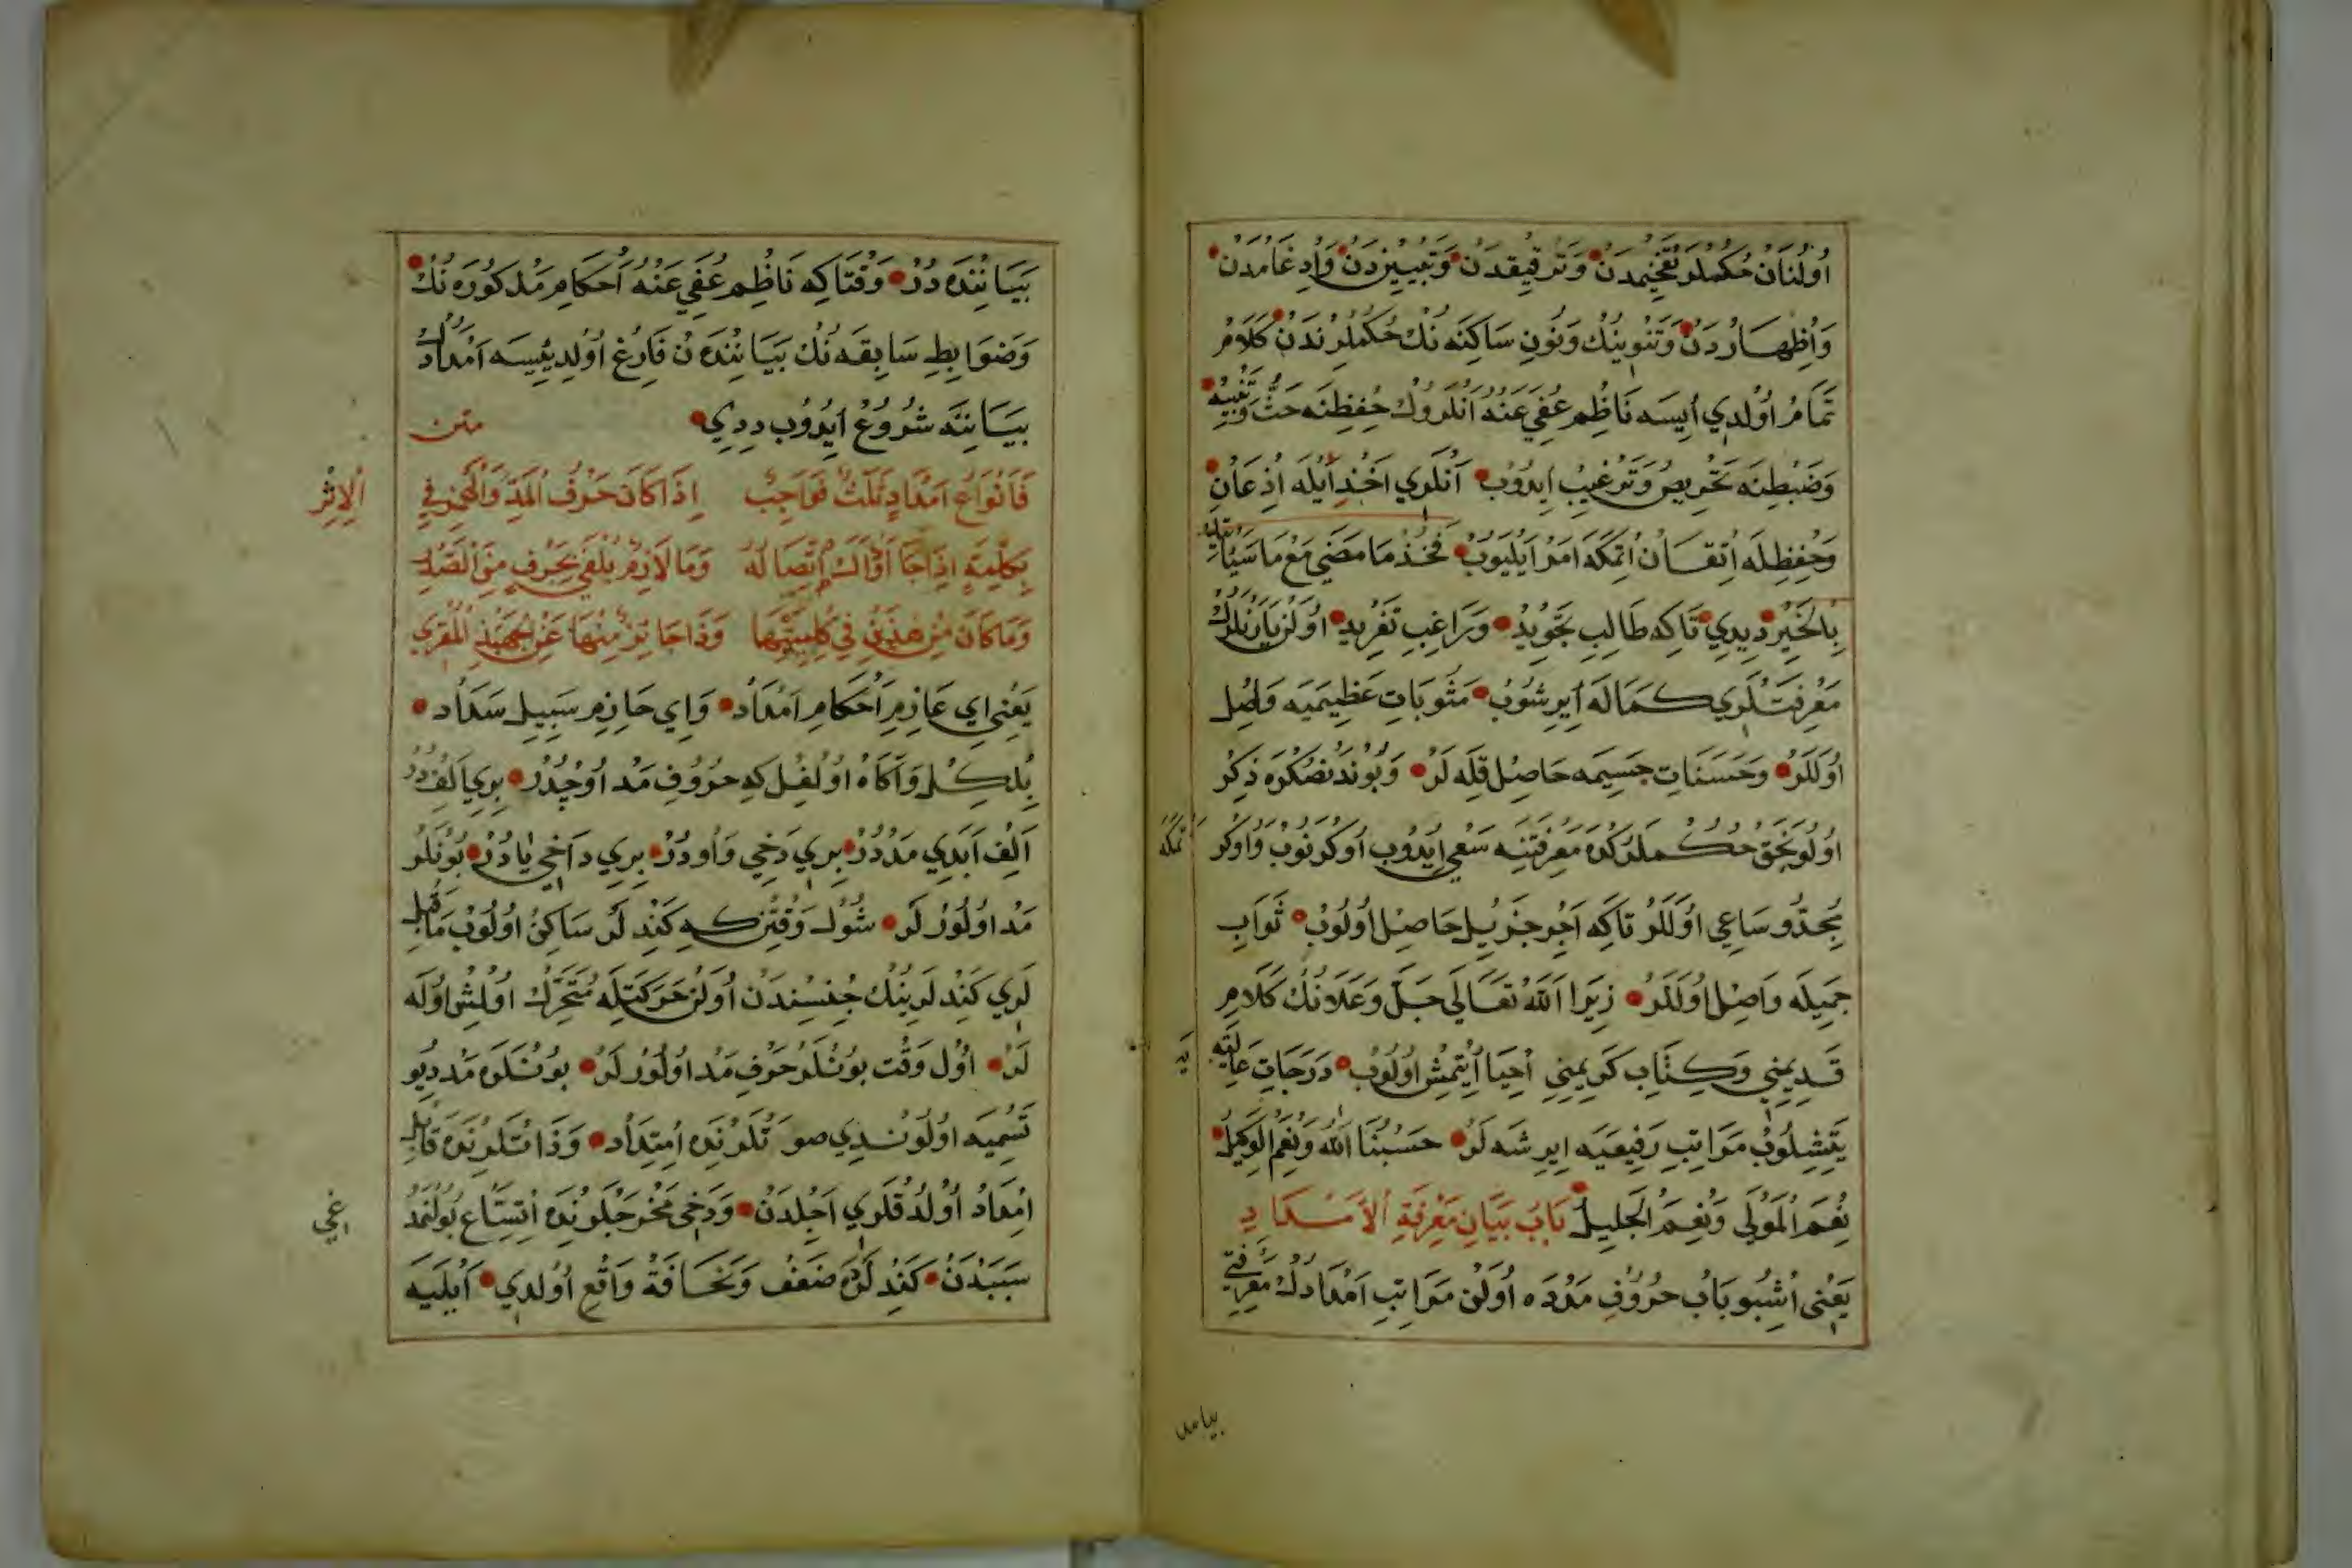 اُولُنَانْ حُكْمْلَرْ تَفْخِيْمْدَنْ وَتَرْقِيقْدَنْ وَتَبْيِيْزْدَنْ وَاِدْغَامْدَنْ
وَاُظْهَارْدَنْ وَتَنْوِينِكْ وَنُونِ سَاكِنَه نُكْ حُكْمْلَرِنْدَنْ كَلَامْ
تَمَامْ اُوْلْدِي اِيسَه نَاظِمْ عُفِيَ عَنْهُ اَنْلَرُوكْ حِفْظِنَه حَثْ وَتَنْبِيَه
وَضَبْطِنَه تَحْرِيصْ وَتَرْغِيبْ اِيدُوبْ اَنْلَرِي اَخْذْ اَيْلَه اِذْعَانْ
وَحِفْظِلَه اِتْقَانْ اِتْمَكَه اَمْرْ اَيْلَيُوبْ فَخُذْ مَا مَضَى مَعْ مَا سَيَأْتِيكَ
بِالْخَيْرِ دِيدِي تَاكِه طَالِبِ تَجْوِيدْ وَرَاغِبِ تَفْرِيدْ اُولَنْ يَارَنْلَرُكْ
مَعْرِفَتْلَرِي كَمَالَه اِيرِشُوبْ مَثُوبَاتِ عَظِيمَيَه وَاصِلْ
اُولَلَرْ وَحَسَنَاتِ جَسِيمَه حَاصِلْ قِلَه لَرْ وَبُونْدَنْصُكْرَه ذِكْرْ
اُولُوْنَجَقْ حُكْمْلَرُكْدَه مَعْرِفَتِنَه سَعْيْ اِيدُوبْ اُوكْرَنُوبْ وَاُوكْرَ
تْمَكَه
مُجِدُّو سَاعِي اُوْلَلَرْ تَاكِه اَجْرِ جَزِيلْ حَاصِلْ اُولُوبْ ثَوَابِ
جَمِيلَه وَاصِلْ اُولَلَرْ زِيَرَا اَللهُ تَعَالَى جَلَّ وَعَلَانُكْ كَلَامِ
قَدِيمِنِي وَكِتَابِ كَرِيمِنِي اِحْيَا اِيْتْمِشْ اُولُوبْ دَرَجَاتِ عَالِيَه
يَه
يَتِشِلُوبْ مَرَاتِبِ رَفِيعَيَه اِيرِشَه لَرْ حَسْبُنَا اللهُ وَنِعْمَ الْوَكِيلُ
نِعْمَ الْمَوْلَى وَنِعْمَ الْجَلِيلُ بَابُ بَيَانِ مَعْرِفَةِ الْاَمْدَادِ
يَعْنِى اُشْبُو بَابْ حُرُوفِ مَدْدَه اُولَنْ مَرَاتِبِ اَمْدَادُكْ مَعْرِفَتِي
بيانند
بَيَانِنْدَه دُرْ وَقْتَاكِه نَاظِمْ عُفِيَ عَنْهُ اَحْكَامِ مَذْكُورَه نُكْ
وَضَوَابِطِ سَابِقَه نُكْ بَيَانِنْدَنْ فَارِغْ اُولْدِيْيسَه اَمْدَادُكْ
بَيَانِنَه شُرُوعْ اِيدُوبْ دِدِي متن
فَاَنْوَاعُ اَمْدَادٍ ثَلَثٌ فَوَاجِبٌ اِذَا كَانَ حَرْفُ الْمَدِّ وَالْهَمْزِ فِي
اَلِاثْرِ
بِكَلِمَةٍ اِذَا جَا اَوْلَاكَ اِتِّصَالُهُ وَمَا لَازِمٌ يُلْفَى بِحَرْفٍ مِنَ الصَّدْرِ
وَمَا كَانَ مِنْ هٰذَيْنِ فِي كِلْمَتَيْهِمَا وَذَا جَائِزٌ مِنْهَا عَنِ الْجِهْبِذِ الْمُقْرِي
يَعْنِي اَي عَازِمِ اَحْكَامِ اَمْدَادْ وَاَي حَازِمِ سَبِيلِ سَدَادْ
بِلْكِلْ وَاَكَاهْ اُولْغِلْ كِه حُرُوفِ مَدْ اُوجْدُرْ بِرِي اَلِفْدُرْ
اَلِفْ اَبَدِي مَدْدُرْ بِرِي دَخِي وَاودُرْ بِرِي دَاخِي يَادُرْ بُونْلَرْ
مَدْ اُولُورْلَرْ شُوْلْ وَقْتِنْ كِه كَنْدِلَرْ سَاكِنْ اُولُوبْ مَاقَبْلْ
لَرِي كَنْدِلَرِينُكْ جِنْسِنْدَنْ اُولَنْ حَرَكَتِلَه مُتَحَرِّكْ اُولْمِشْ اُولَه
لَرْ اُوْلْ وَقْتْ بُونْلَرْ حَرْفِ مَدْ اُولُورْلَرْ بُونْلَرَه مَدْ دِيُو
تَسْمِيَه اُولُونْدِي صَوْتْلَرِنْدَه اِمْتِدَادْ وَذَاتْلَرِنْدَه قَابِلِ
اِمْدَادْ اُولْدُقْلَرِي اَجِلْدَنْ وَدَخِى مَخْرَجْلَرِنْدَه اِتِّسَاعْ بُولْنْمَدْ
اغي
سَبَبْدَنْ كَنْدِلَرْدَه ضَعْفْ وَنَحَافَةْ وَاقِعْ اُوْلْدِي اَيْلَيَه